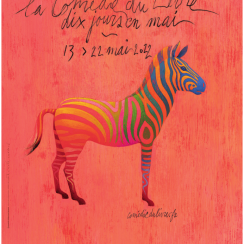 la Comédie du Livre
dix jours en mai
13 > 22 mai 2022